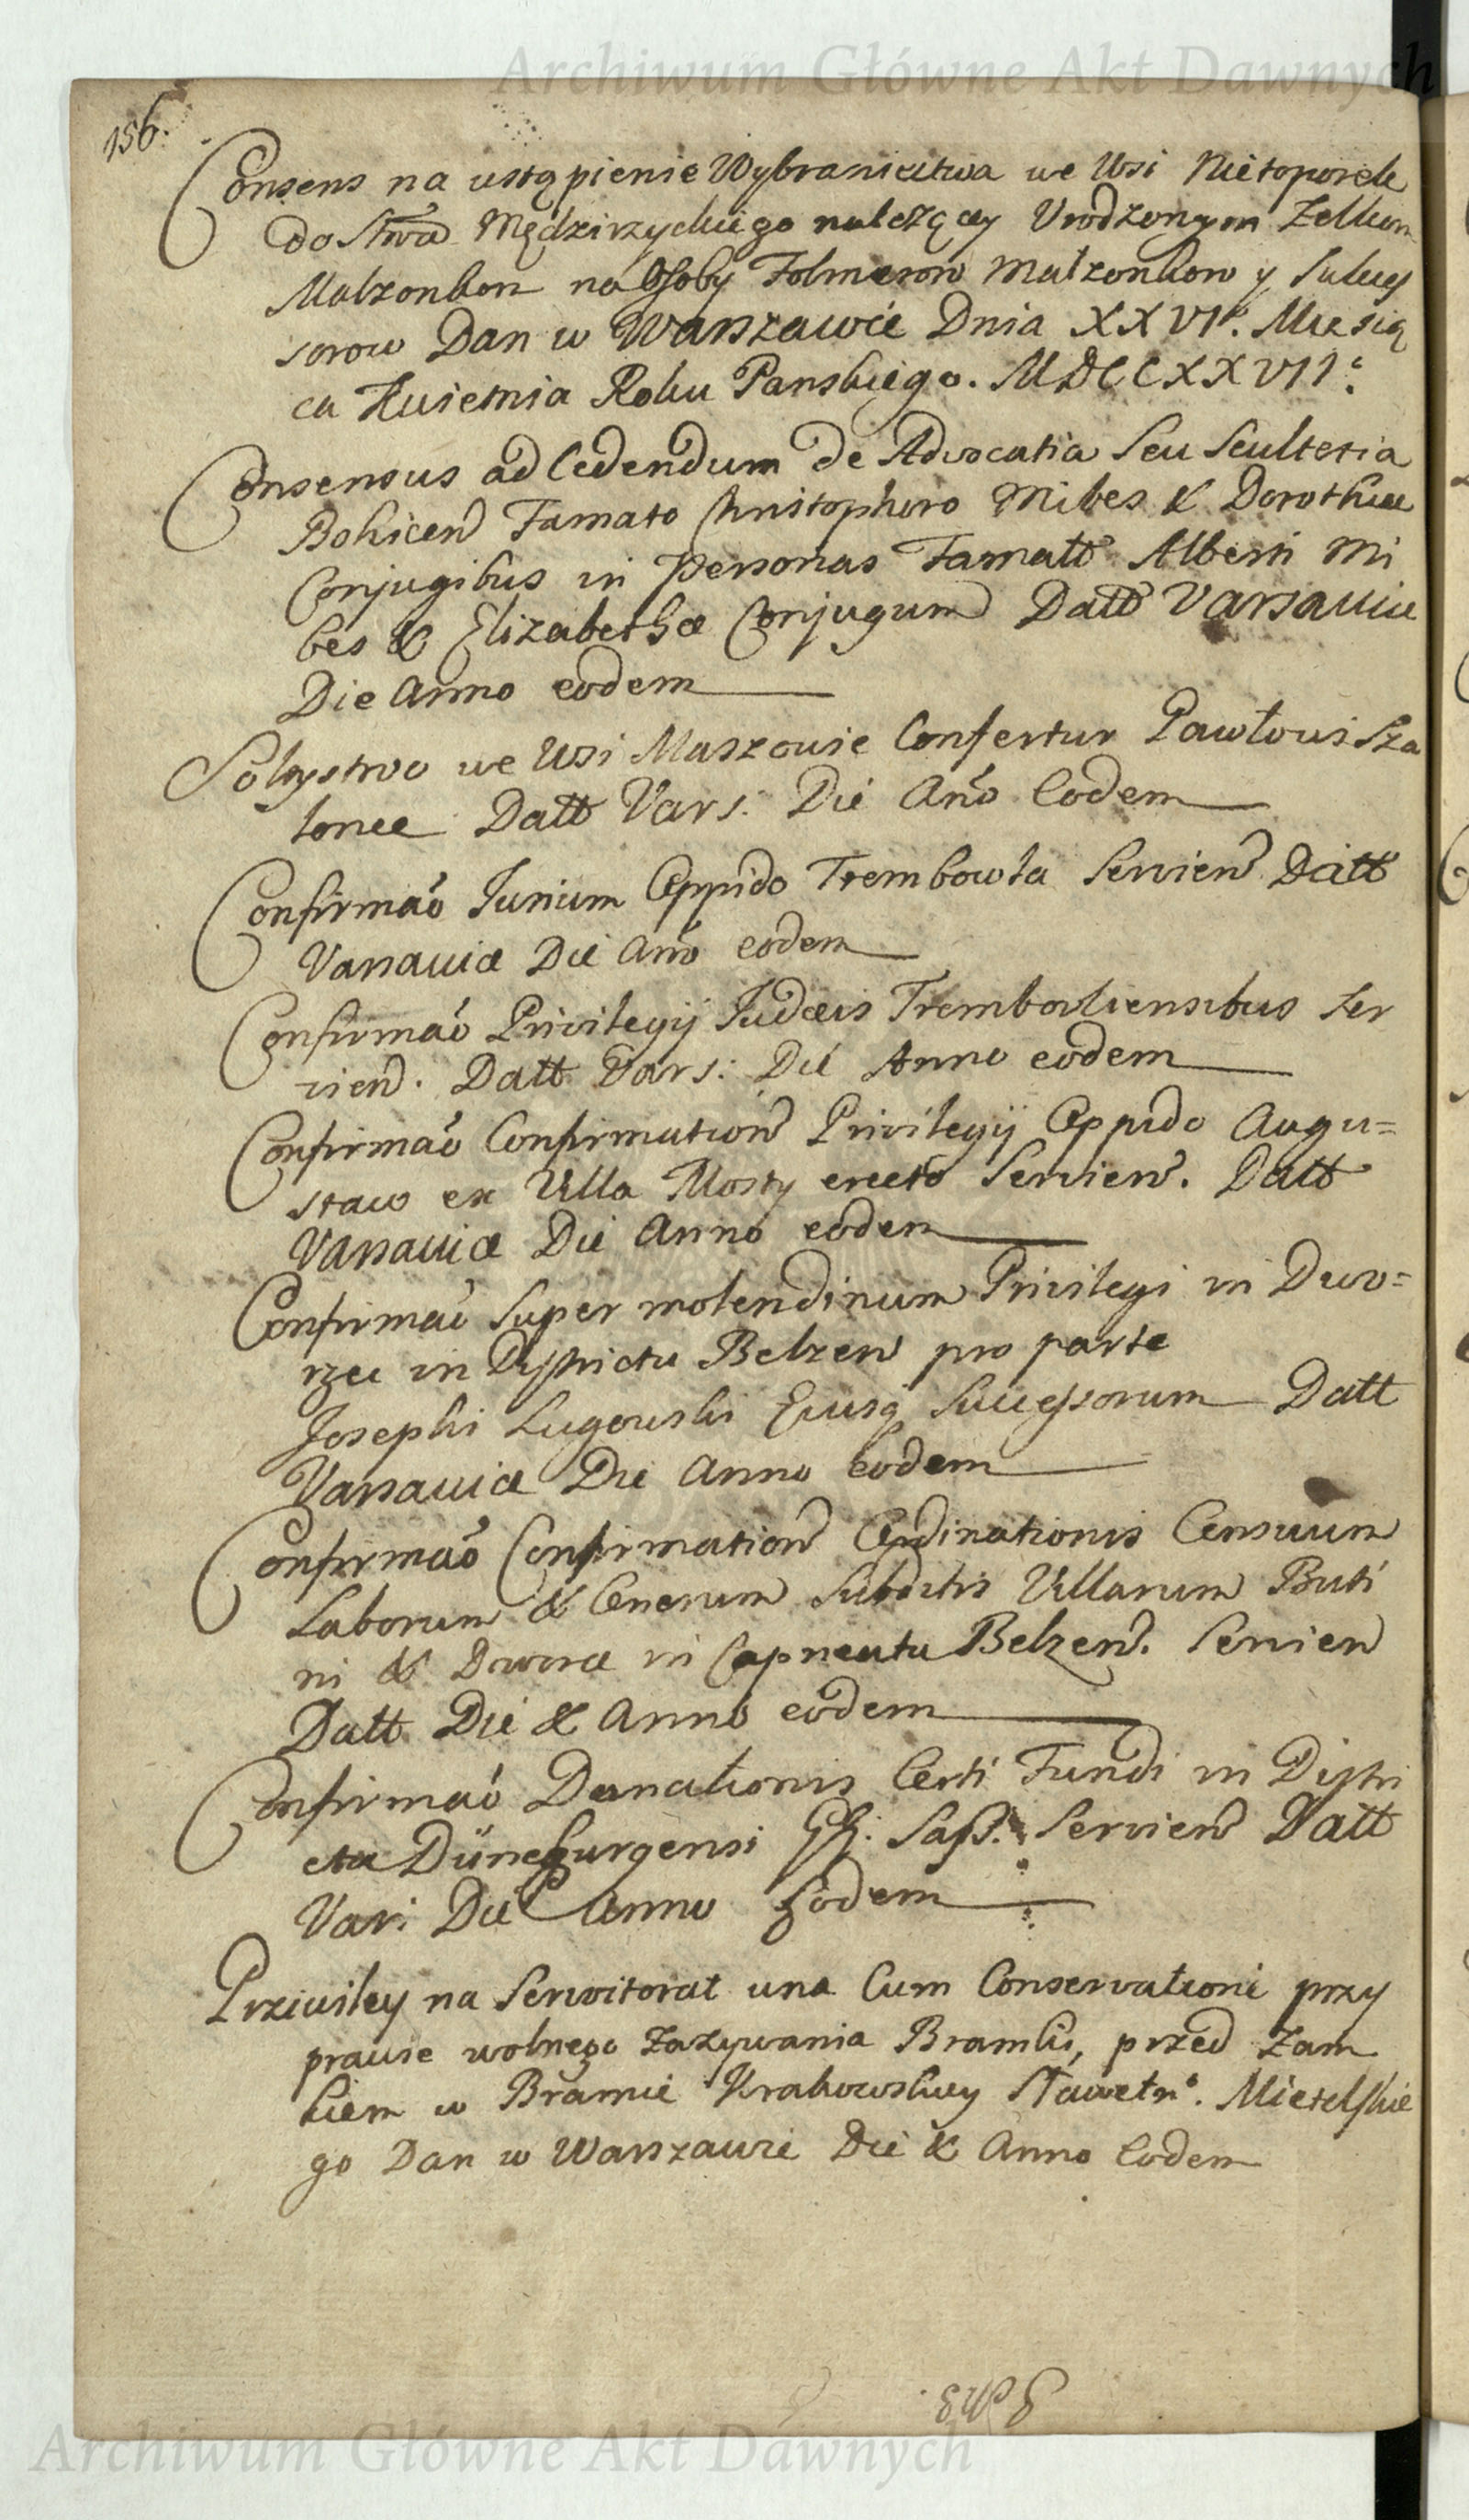 Archiwum Główne Akt Dawnych
156.
Consens na ustąpienie Wybraniectwa we Wsi Nietoporek
do Stwa Mędzirzyckiego nalezący Urodzonym Zelkom
Malzonkom na Osoby Folmerow Małzonkow y Sukces
sorow Dan w Warszawie Dnia XXVI. Miesią
ca Kwietnia Roku Panskiego. MDCCXXVII.
Consensus ad Cedendum de Advocatia Seu Scultetia
Bokicen Famato Christophoro Mibes & Dorotheae
Conjugibus in Personas Famatt Alberti Mi
bes & Elizabethæ Conjugum Datt Varsaviæ
Die Anno eodem
Soltystwo we Wsi Maszowie Confertur Pawłowi Sza
lonce Datt Vars: Die Ano Eodem
Confirmao Iurium Oppido Trembowla Servien Datt
Varsaviæ Die Ano eodem
Confirmao Privilegij Iudæis Trembowliensibus Ser
vien. Datt Vars: Die Anno eodem
Confirmao Confirmation Privilegij Oppido Augu=
staw ex Villa Mosty erecto Servien. Datt
Varsaviæ Die Anno eodem
Confirmao Super molendinum Privilegi in Dwo=
rzec in Districtu Belzen pro parte
Josephi Lugowski Ejusq Successorum Datt
Varsaviæ Die Anno Eodem
Confirmao Confirmation Ordinationis Censuum
Laborum & Onerum Subditis Villarum Buti
ni & Dworce in Capneatu Belzen. Servien
Datt Die & Anno eodem
Confirmao Donationis Certi Fundi in Distri
ctu Düneburgensi Sass. Servien Datt
Vars Die Anno Eodem
Prziwiley na Serwitorat una Cum Conservationi przy
prawie wolnego Zazywania Bramki, przed Zam
kiem w Bramie Krakowskiey Sławetn. Mietelskie
go Dan w Warszawie Die & Anno Eodem
Archiwum Główne Akt Dawnych